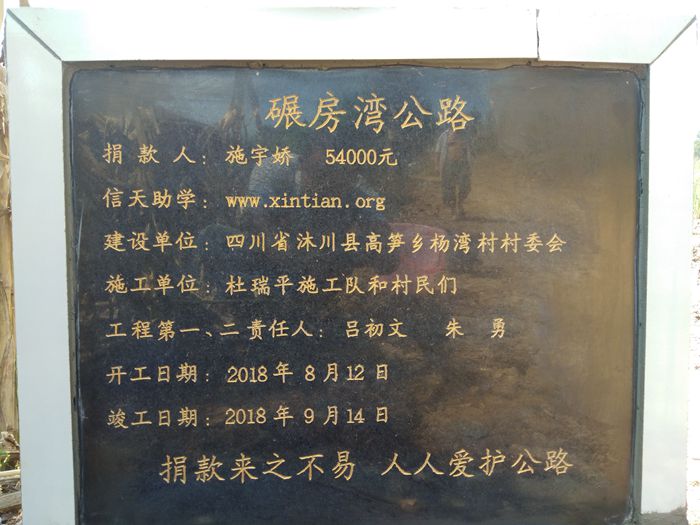 碾房湾公路
捐款人：施宇娇 54000元
信天助学：www.xintian.org
建设单位：四川省沐川县高笋乡杨湾村村委会
施工单位：杜瑞平施工队和村民们
工程第一、二责任人：吕初文 朱勇
开工日期：2018年8月12日
竣工日期：2018年9月14日
捐款来之不易 人人爱护公路